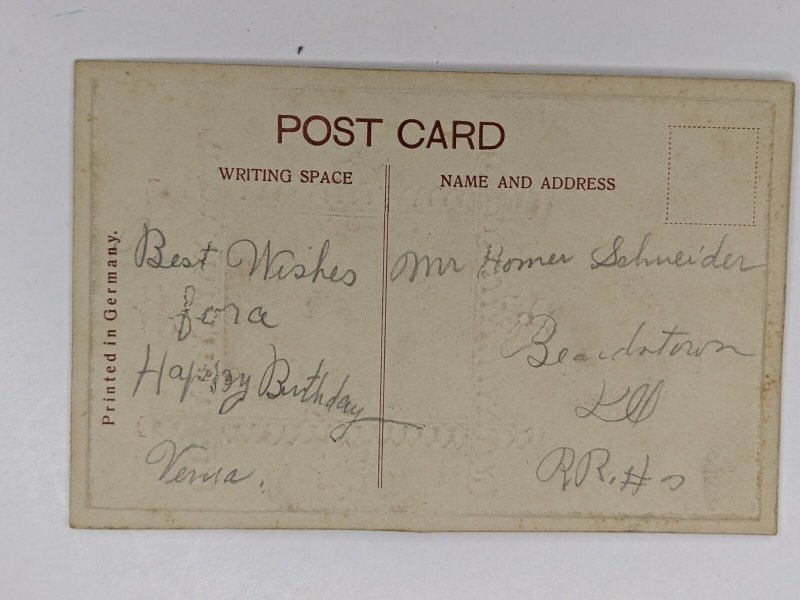 POST CARD
WRITING SPACE
NAME AND ADDRESS
Printed in Germany.
Best Wishes
for a
Happy Birthday
Verna.
Mr Homer Schneider
Beardstown
Ill
RR. #